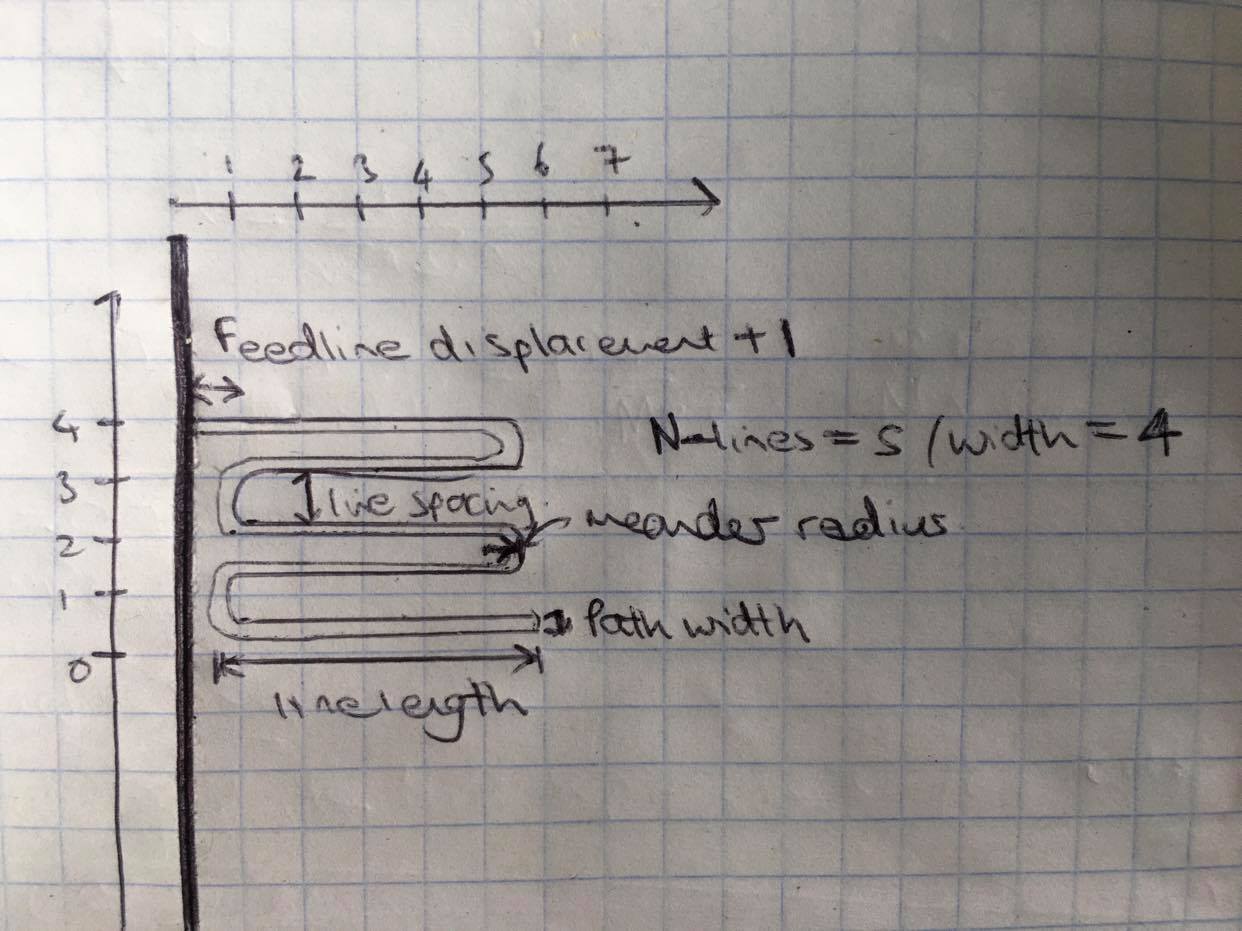 1 2 3 4 5 6 7
Feedline displacement +1
4
N-lines = 5 / width = 4
3
line spacing
meander radius
2
1
Path width
0
line length